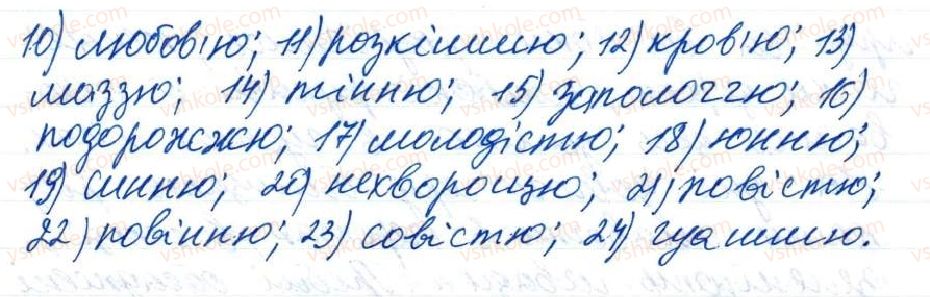 10) любов'ю; 11) розкішшю; 12) кров'ю; 13)
маззю; 14) тінню; 15) заполоччю; 16)
подорожжю; 17) молодістю; 18) юнню;
19) синню; 20) нехворощю; 21) повістю;
22) повінню; 23) совістю; 24) гуашшю.